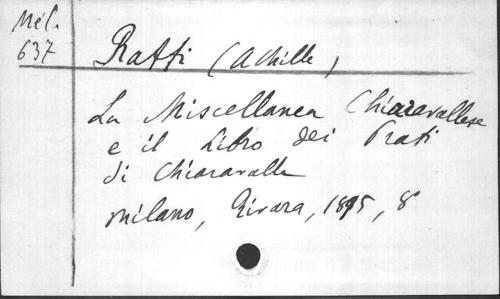 Mél.
637
Ratti (Achille)
La Miscellanea Chiaravallese
e il Libro dei Prati
di Chiaravalle
Milano, Rivara, 1895, 8°